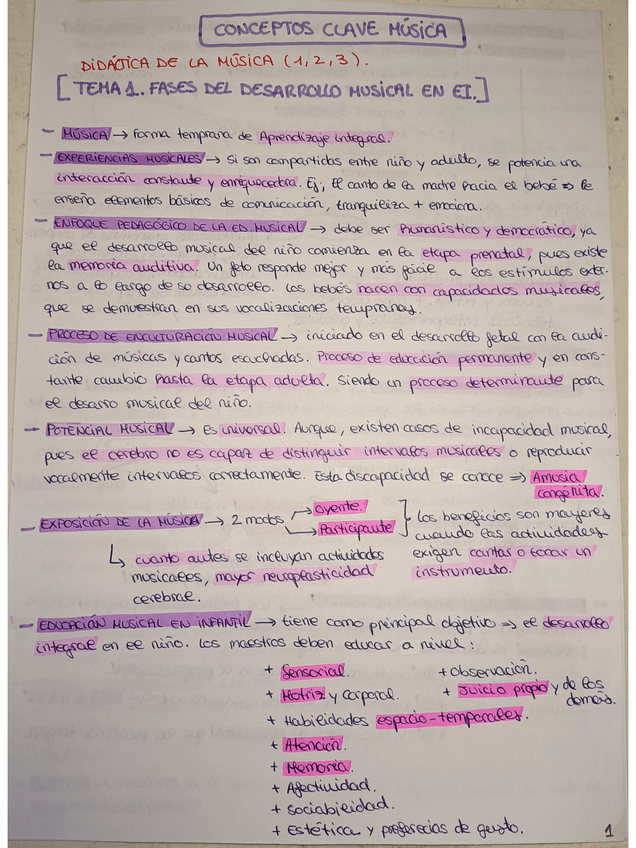 CONCEPTOS CLAVE MÚSICA
DIDÁCTICA DE LA MÚSICA (1, 2, 3).
[TEMA 1. FASES DEL DESARROLLO MUSICAL EN EI.]
- MÚSICA → Forma temprana de Aprendizaje integral.
- EXPERIENCIAS MUSICALES → Si son compartidas entre niño y adulto, se potencia una
interacción constante y enriquecedora. Ej; El canto de la madre hacia el bebé ⇒ le
enseña elementos básicos de comunicación, tranquiliza + emociona.
- ENFOQUE PEDAGÓGICO DE LA ED. MUSICAL → debe ser humanístico y democrático, ya
que el desarrollo musical del niño comienza en la etapa prenatal, pues existe
la memoria auditiva. Un feto responde mejor y más fácil a los estímulos exter-
nos a lo largo de so desarrollo. Los bebés nacen con capacidades musicales,
que se demuestran en sus vocalizaciones tempranas.
- PROCESO DE ENCULTURACIÓN MUSICAL → iniciado en el desarrollo fetal con la audi-
ción de músicas y cantos escuchados. Proceso de educación permanente y en cons-
tante cambio hasta la etapa adulta. Siendo un proceso determinante para
el desarro musical del niño.
- POTENCIAL MUSICAL → Es universal. Aunque, existen casos de incapacidad musical,
pues el cerebro no es capaz de distinguir intervalos musicales o reproducir
vocalmente intervalos correctamente. Esta discapacidad se conoce ⇒ Amusia
congénita.
- EXPOSICIÓN DE LA MÚSICA → 2 modos → Oyente.
→ Participante
] Los beneficios son mayores
cuando las actividades
exigen cantar o tocar un
instrumento.
↳ cuanto antes se incluyan actividades
musicales, mayor neuroplasticidad
cerebral.
- EDUCACIÓN MUSICAL EN INFANTIL → tiene como principal objetivo ⇒ el desarrollo
integral en el niño. Los maestros deben educar a nivel:
+ Sensorial. + Observación.
+ Motriz y corporal. + Juicio propio y de los
demás.
+ Habilidades espacio-temporales.
+ Atención.
+ Memoria.
+ Afectividad.
+ Sociabilidad.
+ Estética y preferecias de gusto.
1